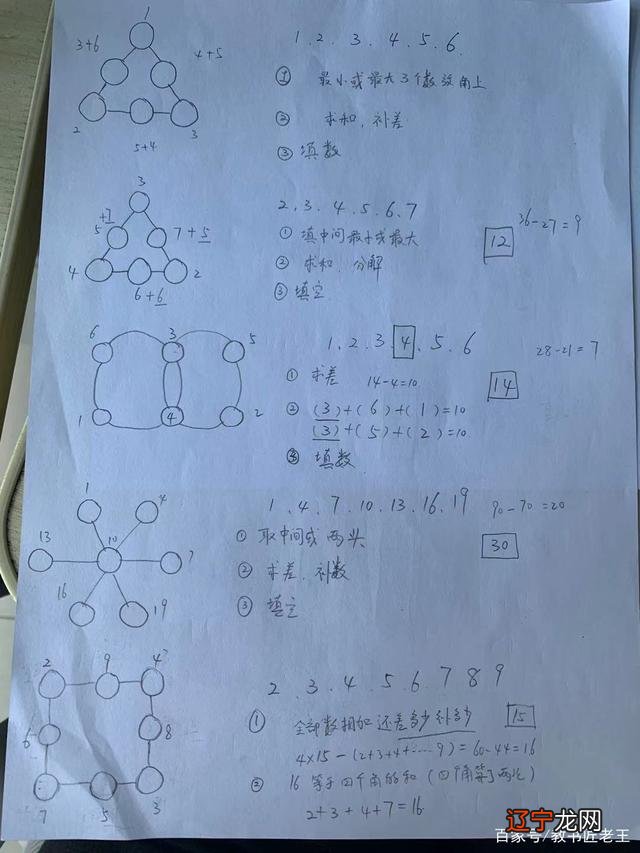 1
3+6
4+5
2
3
5+4
1. 2. 3. 4. 5. 6.
① 最小或最大3个数放角上
② 求和, 补差
③ 填数
3
+7
5
7+5
4
2
6+6
2. 3. 4. 5. 6. 7
① 填中间最小或最大
② 求和, 分解
③ 填空
12
36-27=9
6
3
5
1
4
2
1. 2. 3. 4. 5. 6
① 求差 14-4=10
② (3)+(6)+(1)=10
(3)+(5)+(2)=10
③ 填数
14
28-21=7
1
4
13
10
7
16
19
1. 4. 7. 10. 13. 16. 19
① 取中间或两头
② 求差, 补数
③ 填空
90-70=20
30
2
9
4
6
8
7
5
3
2. 3. 4. 5. 6. 7 8 9
① 全部数相加还差多少补多少
15
4×15-(2+3+4+……9)=60-44=16
② 16等于四个角的和(四个角算了两次)
2+3+4+7=16
辽宁龙网
百家号/教书匠老王